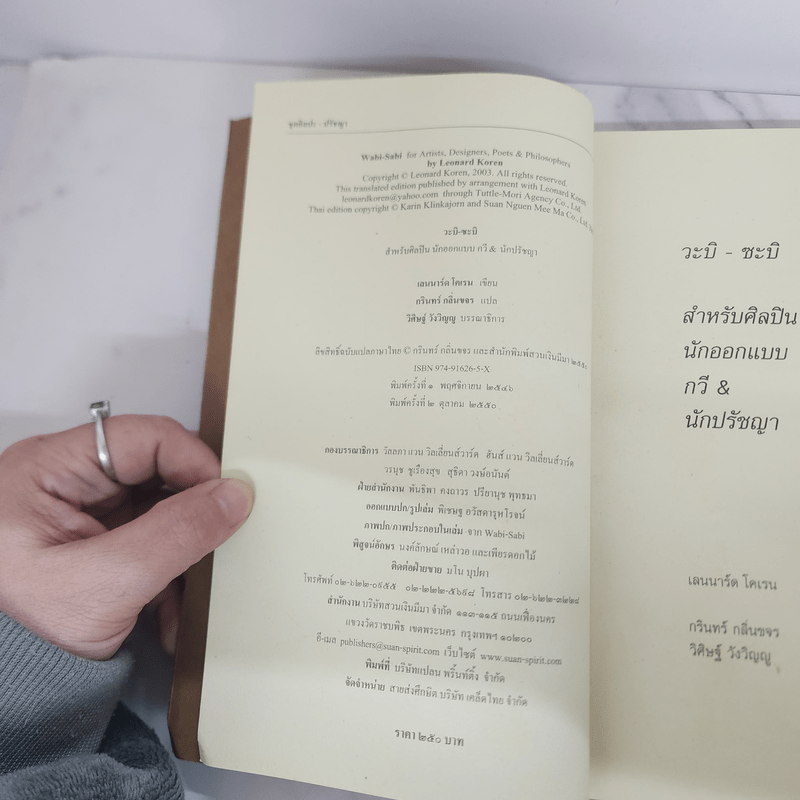 ชุดศิลปะ - ปรัชญา
Wabi-Sabi for Artists, Designers, Poets & Philosophers
by Leonard Koren
Copyright © Leonard Koren, 2003. All rights reserved.
This translated edition published by arrangement with Leonard Koren,
leonardkoren@yahoo.com through Tuttle-Mori Agency Co., Ltd.
Thai edition copyright © Karin Klinkajorn and Suan Nguen Mee Ma Co., Ltd.
วะบิ-ซะบิ
สำหรับศิลปิน นักออกแบบ กวี & นักปรัชญา
เลนนาร์ด โคเรน เขียน
กรินทร์ กลิ่นขจร แปล
วิศิษฐ์ วังวิญญู บรรณาธิการ
ลิขสิทธิ์ฉบับแปลภาษาไทย © กรินทร์ กลิ่นขจร และสำนักพิมพ์สวนเงินมีมา ๒๕๕๐
ISBN 974-91626-5-X
พิมพ์ครั้งที่ ๑ พฤศจิกายน ๒๕๔๖
พิมพ์ครั้งที่ ๒ ตุลาคม ๒๕๕๐
กองบรรณาธิการ วัลลภา แวน วิลเลี่ยนส์วาร์ด ฮันส์ แวน วิลเลี่ยนส์วาร์ด
วรนุช ชูเรืองสุข สุธิดา วงษ์อนันต์
ฝ่ายสำนักงาน พันธิพา คงถาวร ปรียานุช พุทธมา
ออกแบบปก/รูปเล่ม พิเชษฐ
ภาพปก/ภาพประกอบในเล่ม จาก Wabi-Sabi
พิสูจน์อักษร นงค์ลักษณ์ เหล่าวอ และเพียรดอกไม้
ติดต่อฝ่ายขาย มโน บุปผา
โทรศัพท์ ๐๒-๖๒๒-๐๙๕๕ ๐๒-๒๒๒-๕๖๙๘ โทรสาร ๐๒-๖๒๒-๓๒๒๘
สำนักงาน บริษัทสวนเงินมีมา จำกัด ๑๑๓-๑๑๕ ถนนเฟื่องนคร
แขวงวัดราชบพิธ เขตพระนคร กรุงเทพฯ ๑๐๒๐๐
อี-เมล publishers@suan-spirit.com เว็บไซต์ www.suan-spirit.com
พิมพ์ที่ บริษัทแปลน พริ้นท์ติ้ง จำกัด
จัดจำหน่าย สายส่งศึกษิต บริษัท เคล็ดไทย จำกัด
ราคา ๒๕๐ บาท
วะบิ - ซะบิ
สำหรับศิลปิน
นักออกแบบ
กวี &
นักปรัชญา
เลนนาร์ด โคเรน
กรินทร์ กลิ่นขจร
วิศิษฐ์ วังวิญญู